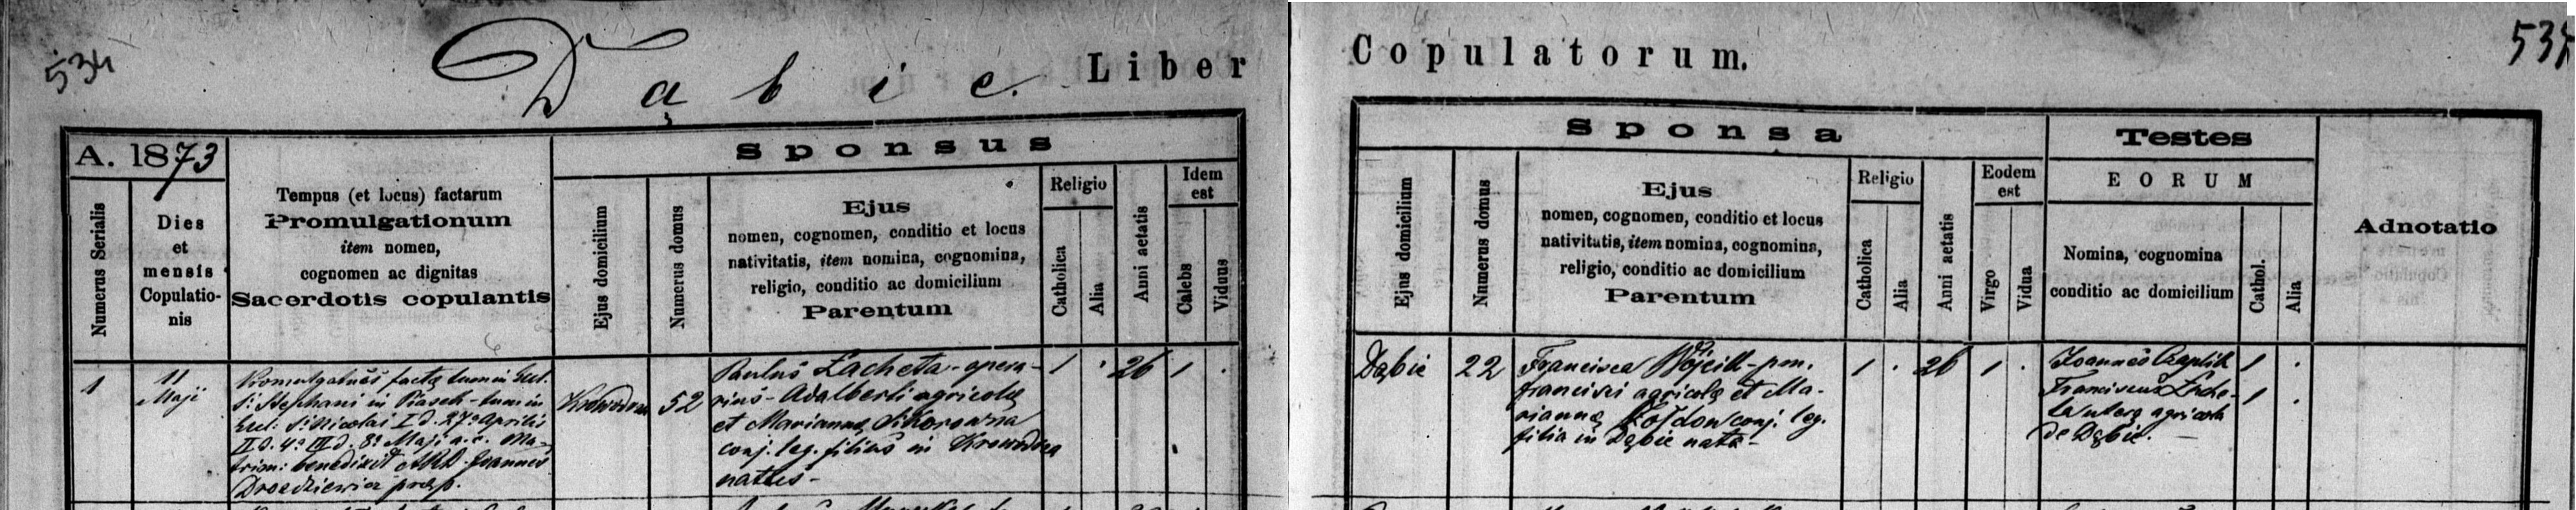 534
Dąbie. Liber
Copulatorum.
535
A. 1873
Numerus Serialis
Dies
et
mensis
Copulatio-
nis
Tempus (et locus) factarum
Promulgationum
item nomen,
cognomen ac dignitas
Sacerdotis copulantis
Sponsus
Ejus domicilium
Numerus domus
Ejus
nomen, cognomen, conditio et locus
nativitatis, item nomina, cognomina,
religio, conditio ac domicilium
Parentum
Religio
Catholica
Alia
Anni aetatis
Idem
est
Calebs
Viduus
Sponsa
Ejus domicilium
Numerus domus
Ejus
nomen, cognomen, conditio et locus
nativitatis, item nomina, cognomina,
religio, conditio ac domicilium
Parentum
Religio
Catholica
Alia
Anni aetatis
Eodem
est
Virgo
Vidua
Testes
EORUM
Nomina, cognomina
conditio ac domicilium
Cathol.
Alia
Adnotatio
1
11
Maji
Promulgatües factæ tum in Eccl.
S: Stephani in Piasek - tum in
Eccl: S: Nicolai I d. 27a Aprilis
II d. 4a III d. 8a Maji a. c. Ma-
trim: benedixit Joannes
præp.
52
Paulus Zacheta - opera-
rius - Adalberti agricolæ
et Mariannæ Sikorowna
conj. leg. filius in Krowodrza
natus -
1
26
1
Dąbie
22
Francisca Wójcik - pm.
Francisci agricolæ et Ma-
riannæ conj. leg.
filia in Dąbie nata -
1
26
1
Joannes Czaplik
Franciscus
agricola
de Dąbie. -
1
1